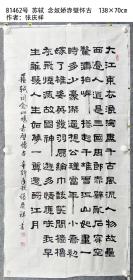 81462号 苏轼 念奴娇赤壁怀古 138×70cm
作者：张庆祥
大江東去浪淘盡千古風流人物故壘
西邊人道是三國周郎赤壁亂石穿空
驚濤拍岸捲起千堆雪江山如畫一時
多少豪傑遙想公瑾當年小喬初嫁了
雄姿英發羽扇綸巾談笑間檣櫓灰飛
煙滅故國神遊多情應笑我早生華髮
人生如夢一尊還酹江月
蘇軾詞念奴嬌赤壁懷古